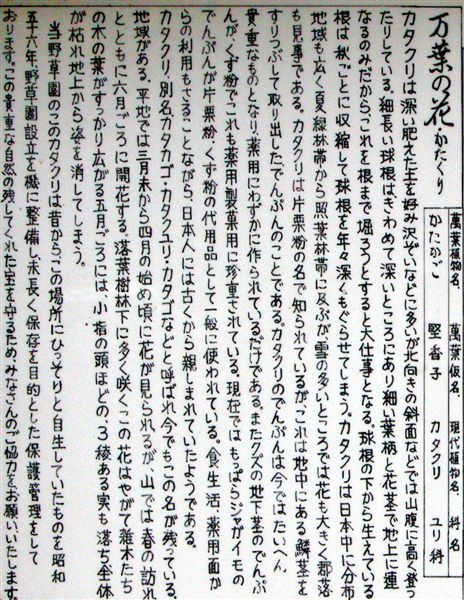 万葉の花・かたくり
萬葉植物名、 萬葉仮名、 現代植物名、 科名
かたかご 堅香子 カタクリ ユリ科
カタクリは深い肥えた土を好み沢ぞいなどに多いが北向きの斜面などでは山腹に高く登っ
たりしている。細長い球根はきわめて深いところにあり細い葉柄と花茎で地上に連
なるのみだからこれを根まで堀ろうとすると大仕事となる。球根の下から生えている
根は秋ごとに収縮して球根を年々深くもぐらせてしまう。カタクリは日本中に分布
地域も広く夏緑林帯から照葉林帯に及ぶが雪の多いところでは花も大きく群落
も見事である。カタクリは片栗粉の名で知られているが、これは地中にある鱗茎を
すりつぶして取り出したでんぷんのことである。カタクリのでんぷんは今ではたいへん
貴重なものとなり、薬用にわずかに作られているだけである。またクズの地下茎のでんぷ
んが、くず粉でこれも薬用製菓用に珍重されている。現在ではもっぱらジャガイモの
でんぷんが片栗粉・くず粉の代用品として一般に使われている。食生活、薬用面か
らの利用もさることながら、日本人には古くから親しまれていたようである。
カタクリ・別名カタカゴ・カタクユリ・カタゴなどと呼ばれ今でもこの名が残っている。
地域がある。平地では三月末から四月の始め頃に花が見られるが、山では春の訪れ
とともに六月ごろに開花する。落葉樹林下に多く咲くこの花はやがて雑木たち
の木の葉がすっかり広がる五月ごろには、小指の頭ほどの、3稜ある実も落ち全体
が枯れ地上から姿を消してしまう。
当野草園のこのカタクリは昔から、この場所にひっそりと自生していたものを昭和
五十六年野草園設立を機に整備し末長く保存を目的とした保護管理をして
おります。この貴重な自然の残してくれた宝を守るためみなさんのご協力をお願いいたします。